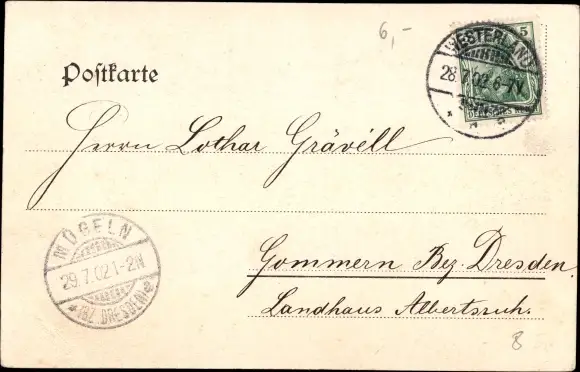 6,-
Postkarte
5
WESTERLAND
28.7.02.6-7N.
Herrn Lothar Grävéll
MÜGELN
29.7.02.1-2N
* (BZ. DRESDEN) *
Gommern Bez. Dresden.
Landhaus Albertsruh.
8